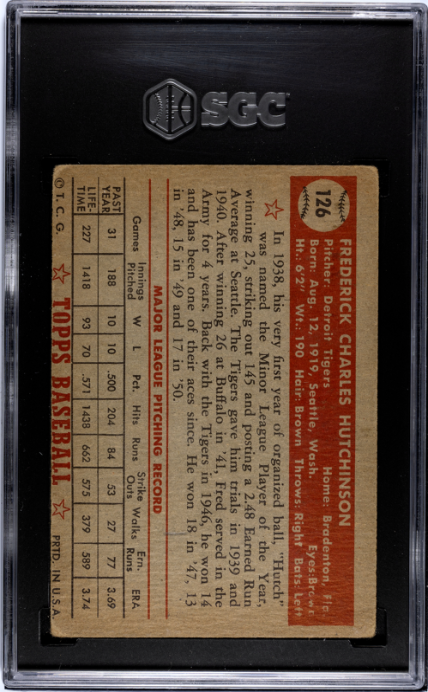 SGC
126
FREDERICK CHARLES HUTCHINSON
Pitcher: Detroit Tigers Home: Bradenton, Fla.
Born: Aug. 12, 1919, Seattle, Wash. Eyes: Brown
Ht.: 6'2" Wt.: 190 Hair: Brown Throws: Right Bats: Left
In 1938, his very first year of organized ball, "Hutch"
was named the Minor League Player of the Year,
winning 25, striking out 145 and posting a 2.48 Earned Run
Average at Seattle. The Tigers gave him trials in 1939 and
1940. After winning 26 at Buffalo in '41, Fred served in the
Army for 4 years. Back with the Tigers in 1946, he won 14
and has been one of their aces since. He won 18 in '47, 13
in '48, 15 in '49 and 17 in '50.
MAJOR LEAGUE PITCHING RECORD
Games Innings Pitched W L Pct. Hits Runs Strike Outs Walks Ern. Runs ERA
PAST YEAR 31 188 10 10 .500 204 84 53 27 77 3.69
LIFE-TIME 227 1418 93 70 .571 1438 662 575 379 589 3.74
© T. C. G. TOPPS BASEBALL PRTD. IN U.S.A.